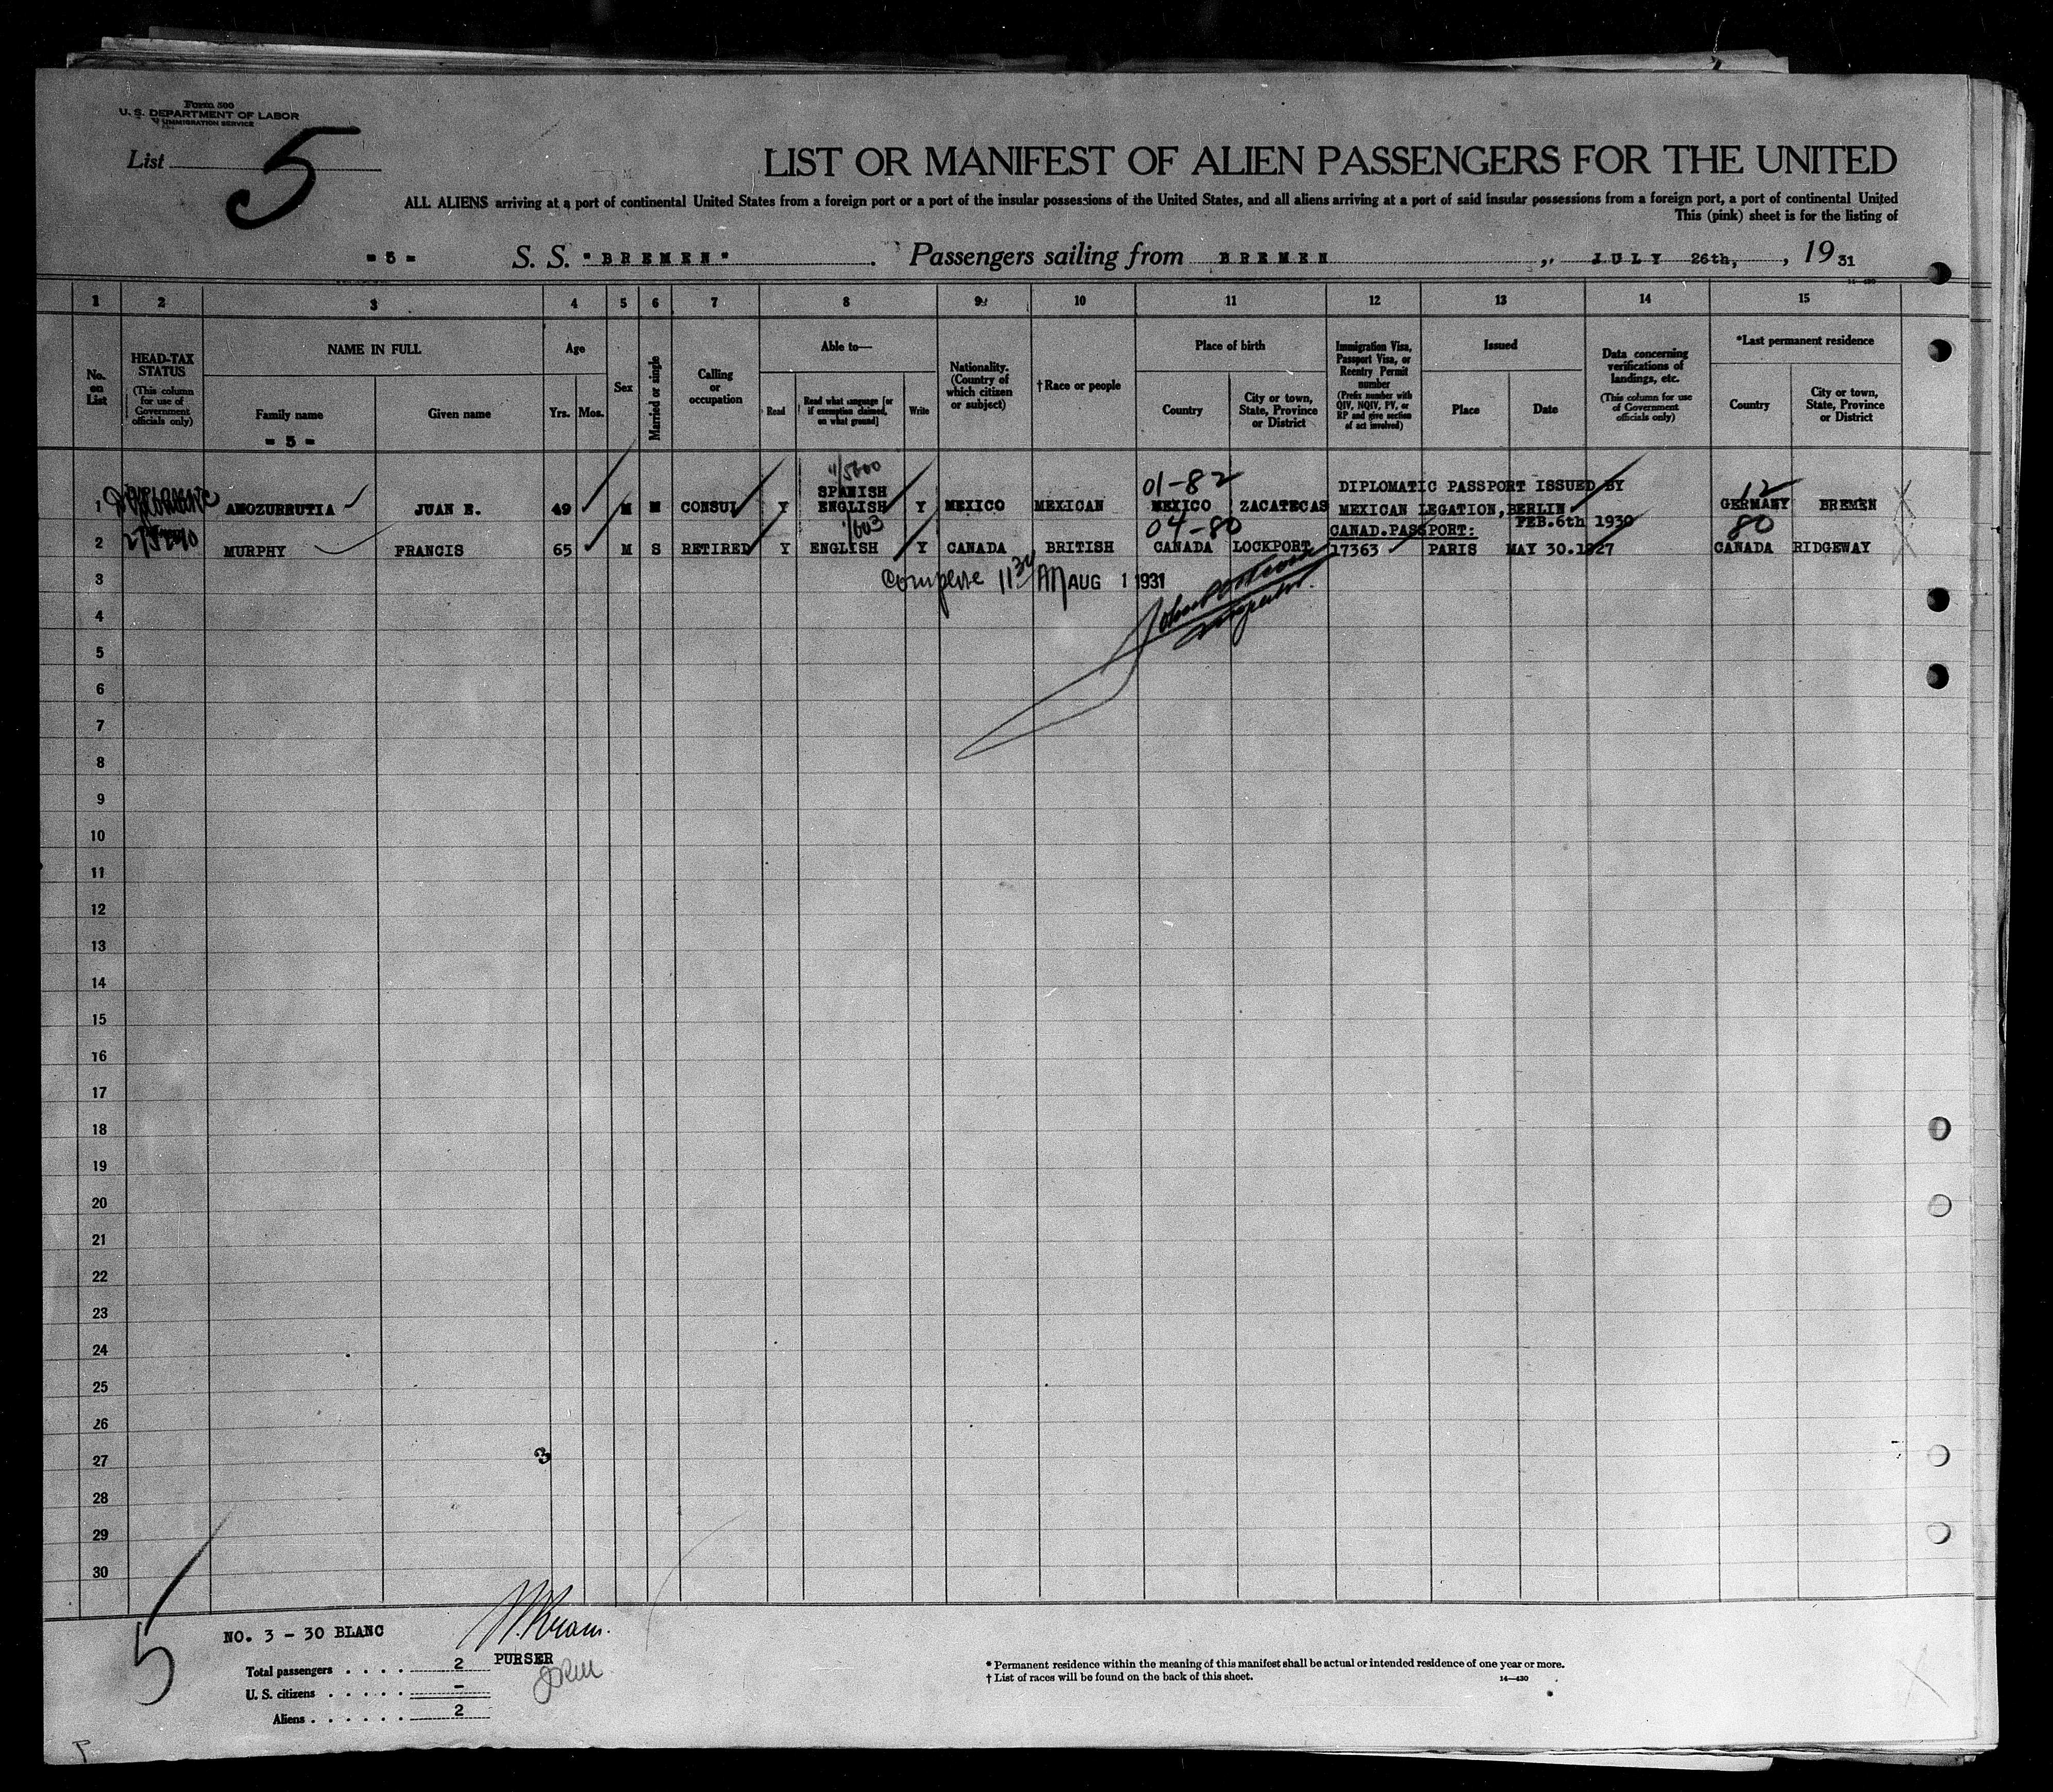 Form 500
U. S. DEPARTMENT OF LABOR
IMMIGRATION SERVICE
List 5
LIST OR MANIFEST OF ALIEN PASSENGERS FOR THE UNITED
ALL ALIENS arriving at a port of continental United States from a foreign port or a port of the insular possessions of the United States, and all aliens arriving at a port of said insular possessions from a foreign port, a port of continental United
This (pink) sheet is for the listing of
- 5 - S. S. "BREMEN". Passengers sailing from BREMEN ,, JULY 26th, , 19 31
14-430
1 2 3 4 5 6 7 8 9 10 11 12 13 14 15
No. on List
HEAD-TAX STATUS
(This column for use of Government officials only)
NAME IN FULL
Family name
- 5 -
Given name
Age
Yrs. Mos.
Sex
Married or single
Calling or occupation
Able to—
Read
Read what language [or if exemption claimed, on what ground]
Write
Nationality. (Country of which citizen or subject)
†Race or people
Place of birth
Country
City or town, State, Province or District
Immigration Visa, Passport Visa, or Reentry Permit number
(Prefix number with QIV, NQIV, PV, or RP and give section of act involved)
Issued
Place
Date
Data concerning verifications of landings, etc.
(This column for use of Government officials only)
*Last permanent residence
Country
City or town, State, Province or District
01-82 12
1 AMOZURRUTIA JUAN E. 49 M M CONSUL Y SPANISH ENGLISH Y MEXICO MEXICAN MEXICO ZACATECAS DIPLOMATIC PASSPORT ISSUED BY MEXICAN LEGATION, BERLIN FEB.6th 1930 GERMANY BREMEN
04-80 80
2 MURPHY FRANCIS 65 M S RETIRED Y ENGLISH Y CANADA BRITISH CANADA LOCKPORT CANAD.PASSPORT: 17363 PARIS MAY 30.1927 CANADA RIDGEWAY
3 AUG 1 1931
Inspector.
4
5
6
7
8
9
10
11
12
13
14
15
16
17
18
19
20
21
22
23
24
25
26
27 3
28
29
30
5
NO. 3 - 30 BLANC
PURSER
Total passengers . . . . 2
U. S. citizens . . . . . -
Aliens . . . . . . 2
* Permanent residence within the meaning of this manifest shall be actual or intended residence of one year or more.
† List of races will be found on the back of this sheet.
14—430